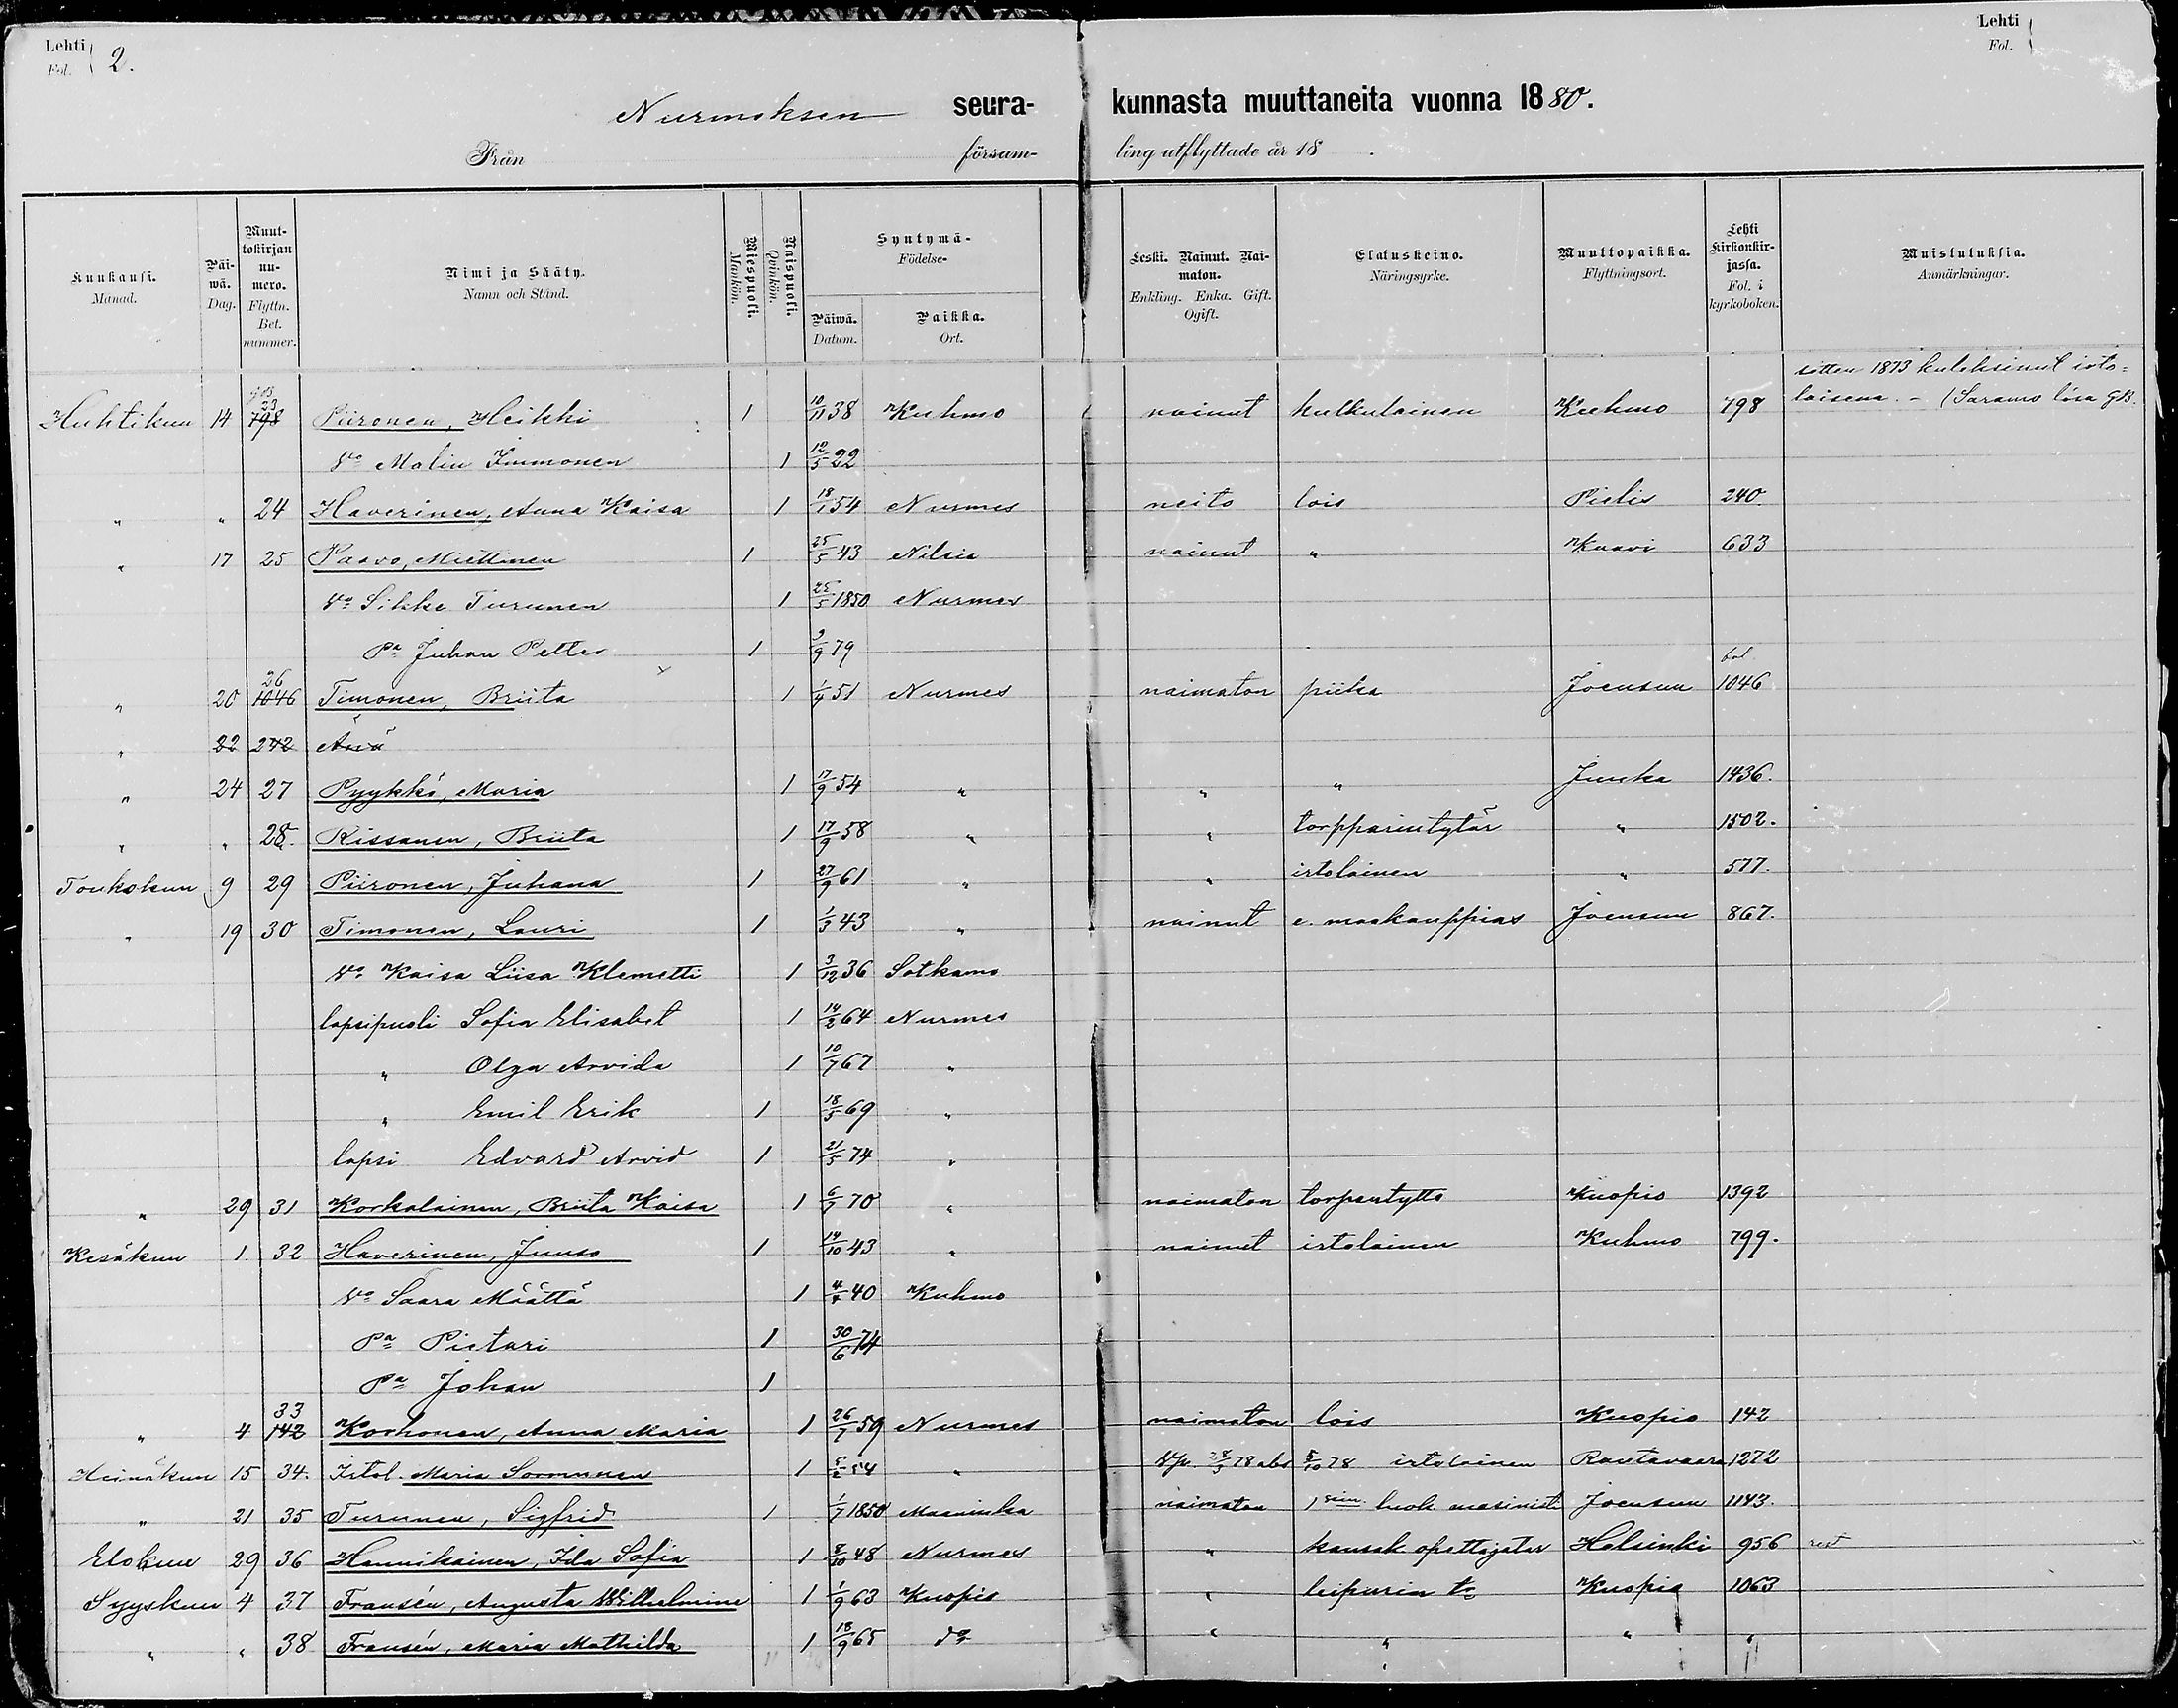 Lehti Fol. 2.
Lehti Fol.
Nurmeksen seura- kunnasta muuttaneita vuonna 1880.
Från församling utflyttade år 18 .
Kuukausi. Månad.
Päiwä. Dag.
Muuttokirjan numero. Flyttn. Bet. nummer.
Nimi ja Sääty. Namn och Stånd.
Miespuoli. Mankön.
Naispuoli. Qvinkön.
Syntymä- Födelse-
Päiwä. Datum.
Paikka. Ort.
Leski. Nainut. Naimaton. Enkling. Enka. Gift. Ogift.
Elatuskeino. Näringsyrke.
Muuttopaikka. Flyttningsort.
Lehti Kirkonkirjassa. Fol. i kyrkoboken.
Muistutuksia. Anmärkningar.
sitten 1873 kuleksinut irto=
Huhtikuu 14 798 23 Piironen, Heikki 1 10/11 38 Kuhmo nainut kulkulainen Kuhmo 798 laisena. -
Vo Malin Immonen 1 12/5 22
" " 24 Haverinen, Anna Kaisa 1 18/1 54 Nurmes neito lois Pielis 240
" 17 25 Paavo, Miettinen 1 25/5 43 Nilsia nainut " Kaavi 633
Vo Sikke Turunen 1 25/5 1850 Nurmes
Pa Juhan Petter 1 3/9 79
" 20 1046 26 Timonen, Briita 1 1/4 51 Nurmes naimaton piika Joensuu fol. 1046
" 22 242
" 24 27 Pyykkö, Maria 1 17/9 54 " " " Juuka 1436.
" " 28. Kissanen, Briita 1 17/9 58 " " torpparintytär " 1502.
Toukokuu 9 29 Piironen, Juhana 1 27/9 61 " " irtolainen " 577.
" 19 30 Timonen, Lauri 1 1/3 43 " nainut e. maakauppias Joensuu 867.
Vo Kaisa Liisa Klemetti 1 3/12 36 Sotkamo
lapsipuoli Sofia Elisabet 1 14/2 64 Nurmes
" Olga Arvida 1 10/7 67 "
" Emil Erik 1 18/5 69 "
lapsi Edvard Arvid 1 21/5 74 "
" 29 31 Korkalainen, Briita Kaisa 1 6/7 70 " naimaton torpantyttö Kuopio 1392
Kesäkuu 1. 32 Haverinen, Juuso 1 14/10 43 " nainut irtolainen Kuhmo 799.
Vo Saara Määttä 1 4/4 40 Kuhmo
Pa Pietari 1 30/6 74
Pa Johan 1
" 4 142 33 Korhonen, Anna Maria 1 26/7 59 Nurmes naimaton lois Kuopio 142
Heinäkuu 15 34. Irtol. Maria Sormunen 1 5/2 54 " 78 abs 5/10 78 irtolainen Rautavaara 1272
" 21 35 Turunen, Sigfrid 1 1/7 1850 Maaninka naimaton Joensuu 1143.
Elokuu 29 36 Hannikainen, Ida Sofia 1 8/10 48 Nurmes " kansak opettajatar Helsinki 956
Syyskuu 4 37 Fransén, Augusta Wilhelmina 1 1/9 63 Kuopio " leipurin tr Kuopio 1063
" " 38 Fransén, Maria Mathilda 1 18/9 65 do " " " "